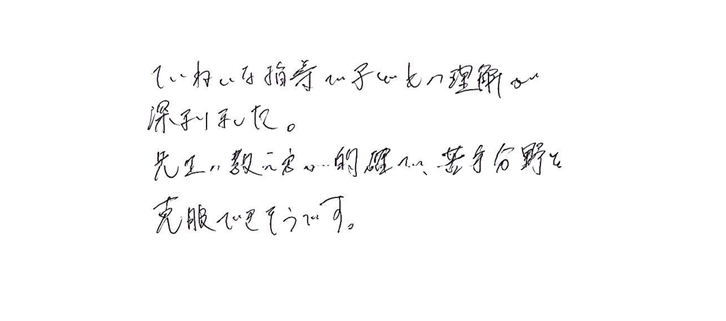 ていねいな指導で子どもの理解が
深まりました。
先生の教え方が的確で、苦手分野を
克服できそうです。